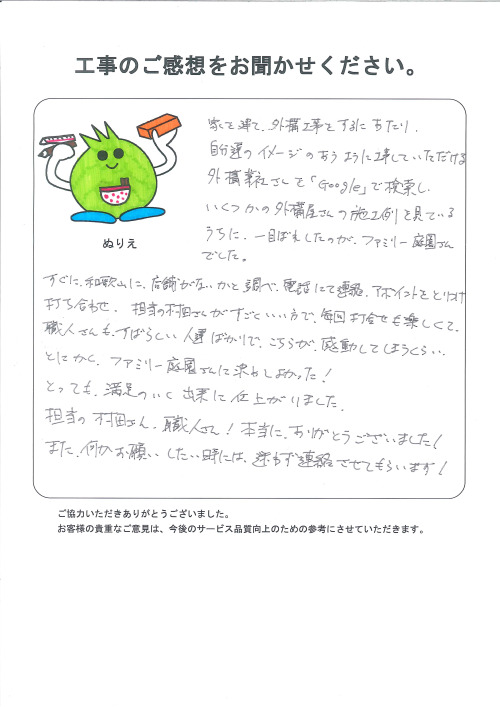 工事のご感想をお聞かせください。
家を建て、外構工事をするにあたり、
自分達のイメージのあうように工事していただける
外構業社さんを「Google」で検索し
いくつかの外構屋さんの施工例を見ている
うちに、一目ぼれしたのが、ファミリー庭園さん
でした。
ぬりえ
すぐに、和歌山に、店舗がないかと調べ、電話にて連絡、アポイントをとりつけ
打ち合わせ、担当の村田さんがすごくいい方で、毎回打合せも楽しくて、
職人さんも、すばらしい人達ばかりで、こちらが、感動してしまうくらい、
とにかく、ファミリー庭園さんに決めてよかった!
とっても、満足のいく出来に仕上がりました。
担当の村田さん、職人さん!本当に、ありがとうございました!
また、何かお願いしたい時には、迷わず連絡させてもらいます!
ご協力いただきありがとうございました。
お客様の貴重なご意見は、今後のサービス品質向上のための参考にさせていただきます。